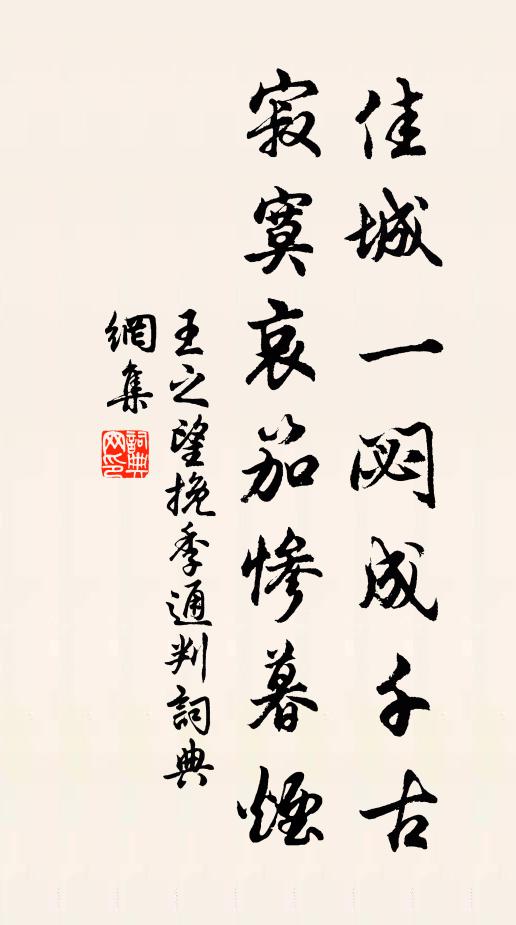 佳城一閟成千古
寂寞哀笳慘暮煙
王之望挽季通判詞典
網集
詞典
网印